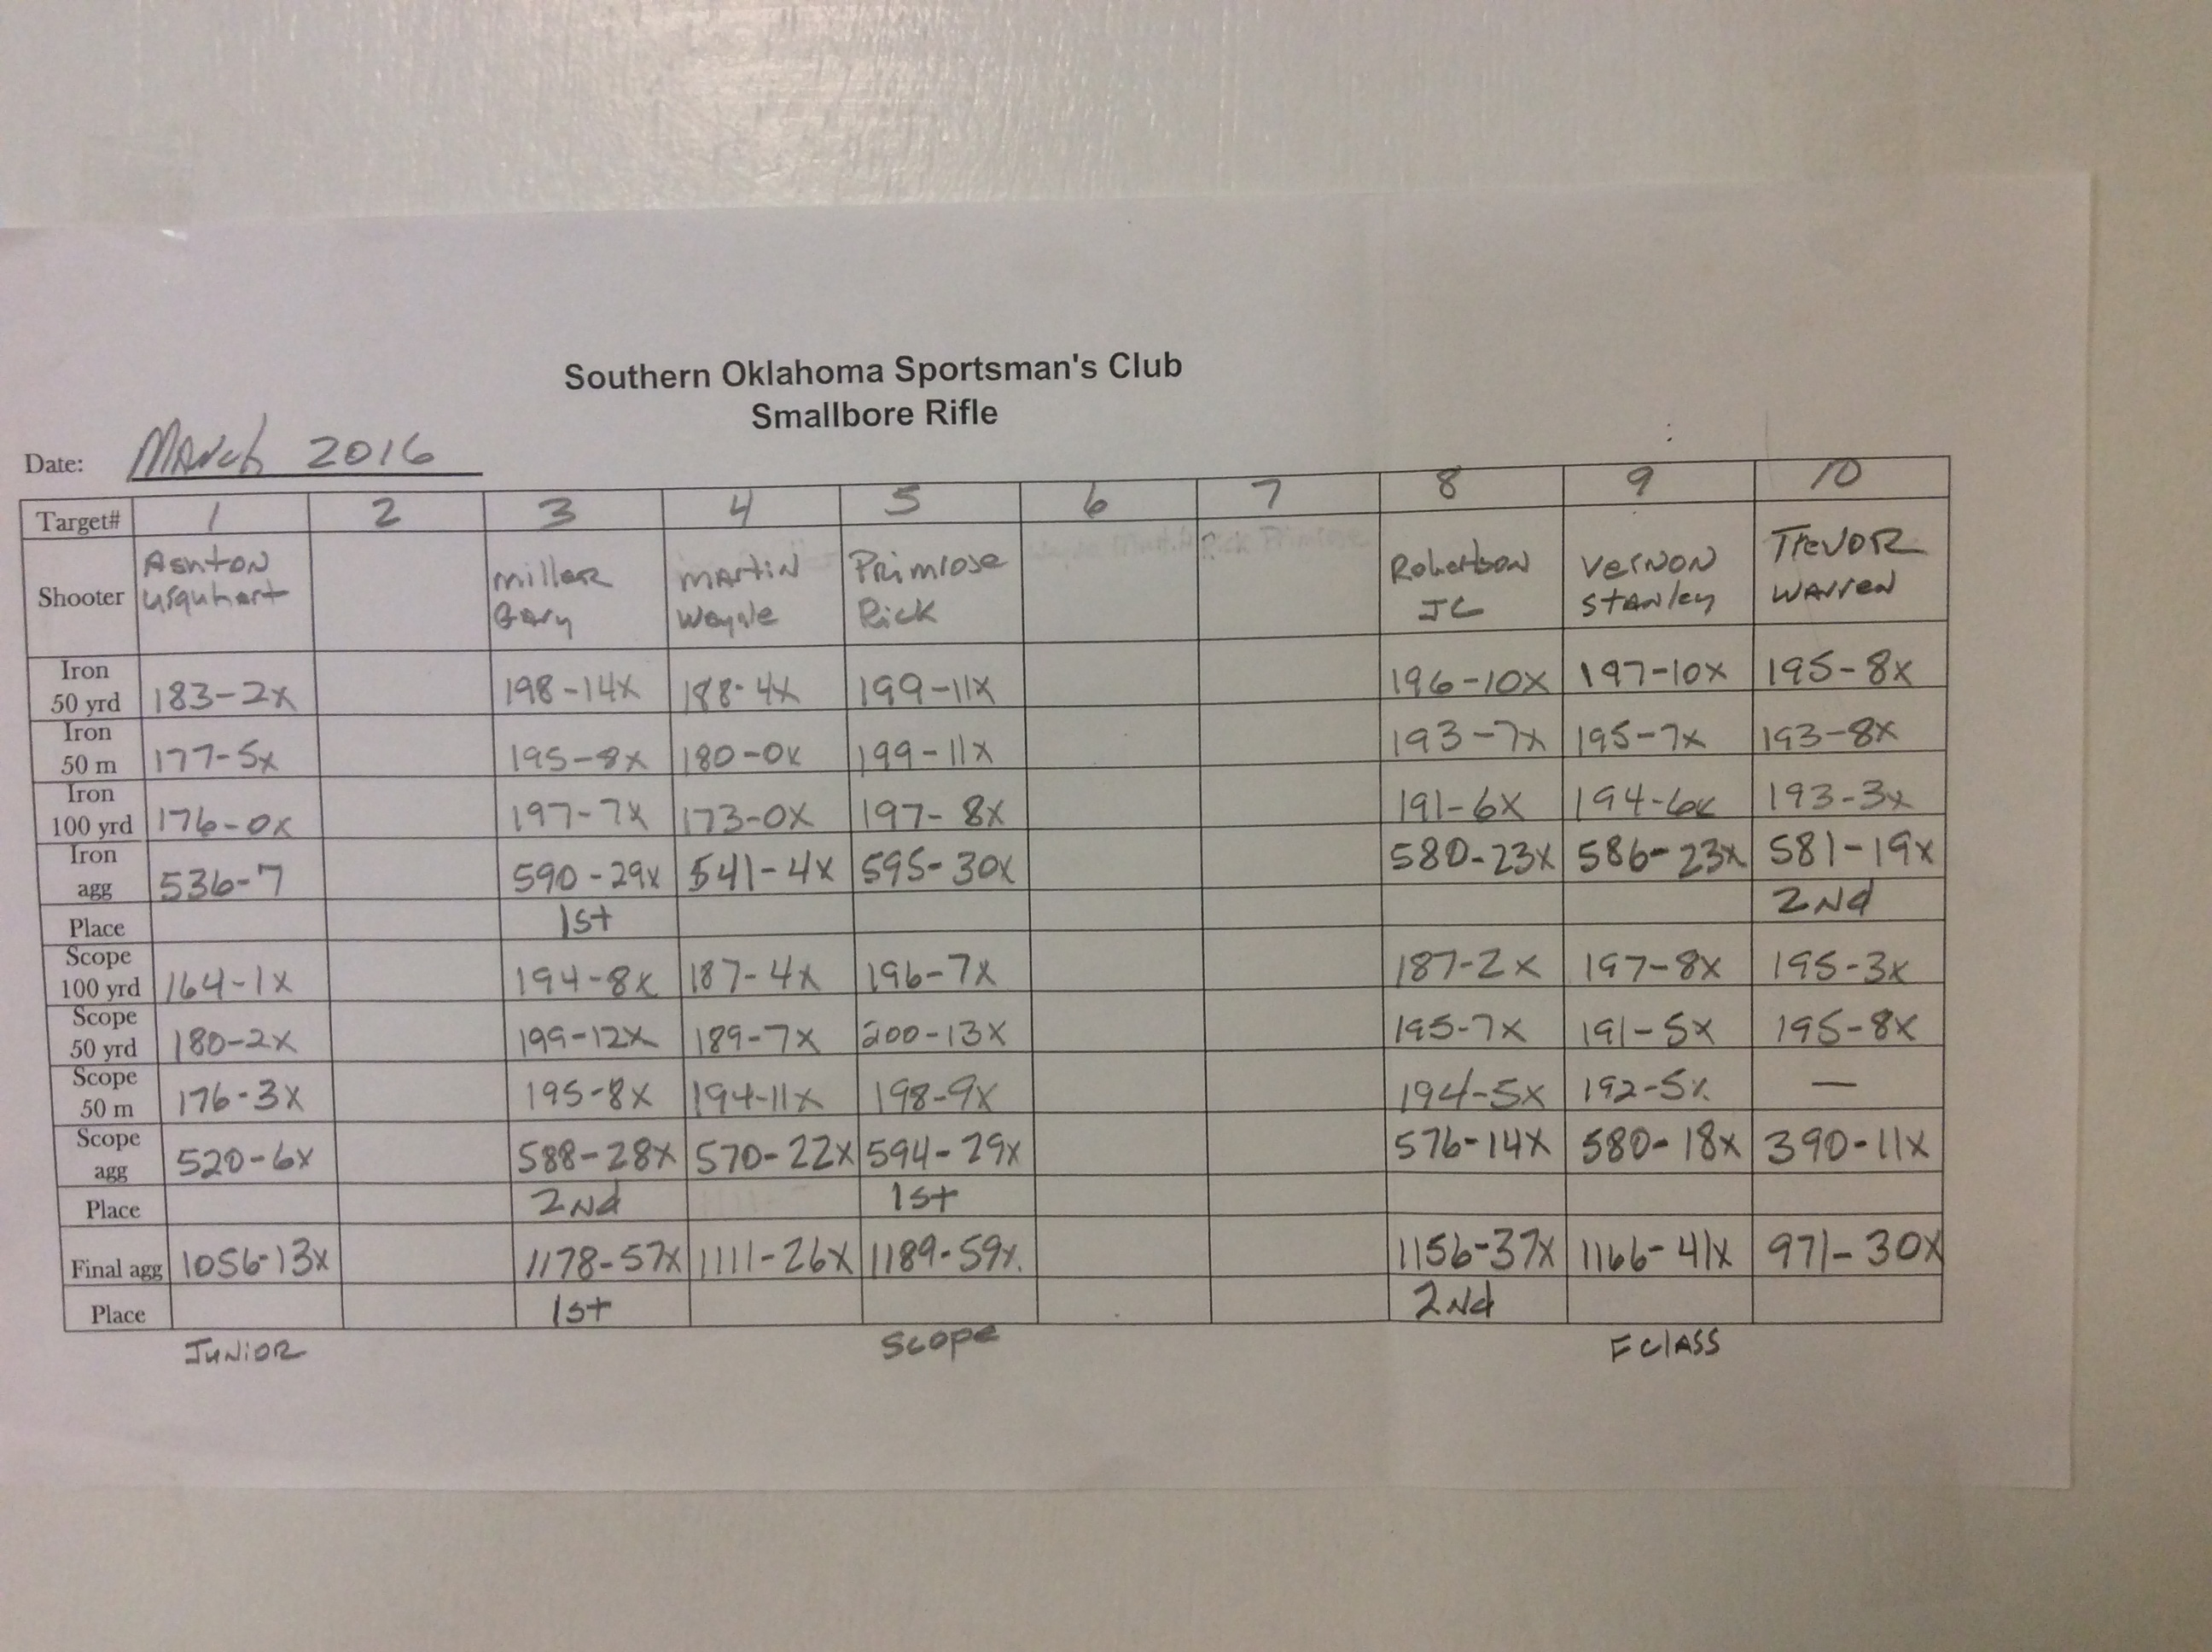 Southern Oklahoma Sportsman's Club
Smallbore Rifle
Date: March 2016
Target# 1 2 3 4 5 6 7 8 9 10
Shooter Ashton Urquhart Miller Gary Martin Wayne Primrose Rick Rick Primrose Robertson JC Vernon Stanley Trevor Warren
Iron 50 yrd 183-2x 198-14x 188-4x 199-11x 196-10x 197-10x 195-8x
Iron 50 m 177-5x 195-8x 180-0x 199-11x 193-7x 195-7x 193-8x
Iron 100 yrd 176-0x 197-7x 173-0x 197-8x 191-6x 194-6x 193-3x
Iron agg 536-7 590-29x 541-4x 595-30x 580-23x 586-23x 581-19x
Place 1st 2nd
Scope 100 yrd 164-1x 194-8x 187-4x 196-7x 187-2x 197-8x 195-3x
Scope 50 yrd 180-2x 199-12x 189-7x 200-13x 195-7x 191-5x 195-8x
Scope 50 m 176-3x 195-8x 194-11x 198-9x 194-5x 192-5x —
Scope agg 520-6x 588-28x 570-22x 594-29x 576-14x 580-18x 390-11x
Place 2nd 1st
Final agg 1056-13x 1178-57x 1111-26x 1189-59x. 1156-37x 1166-41x 971-30x
Place 1st 2nd
Junior Scope F class